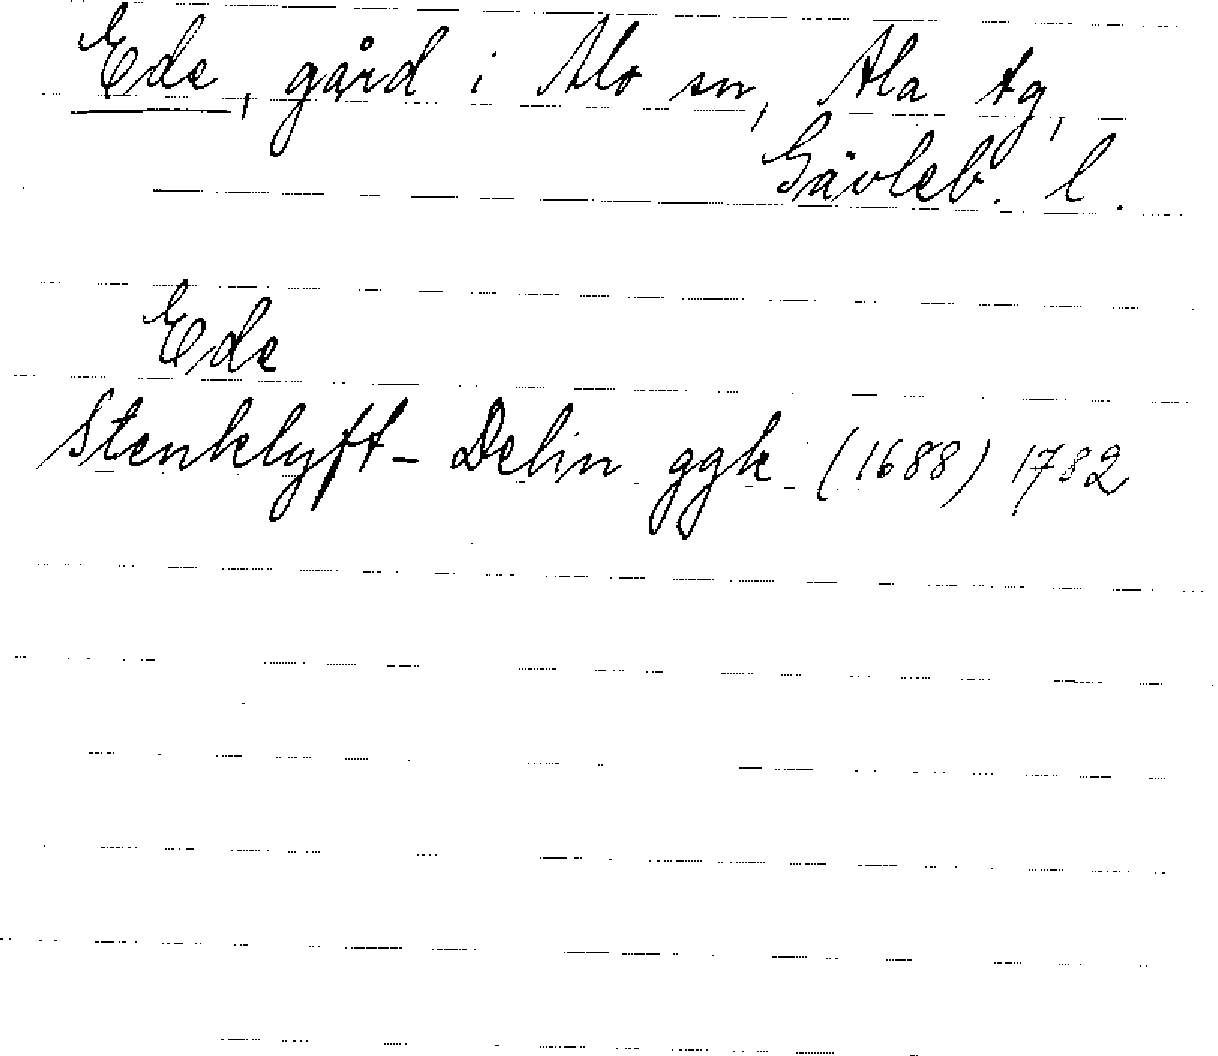 Ede, gård i Alo sn, Ala tg,
Gävleb. l.
Ede
Stenklyft- Delin ggk (1688) 1782